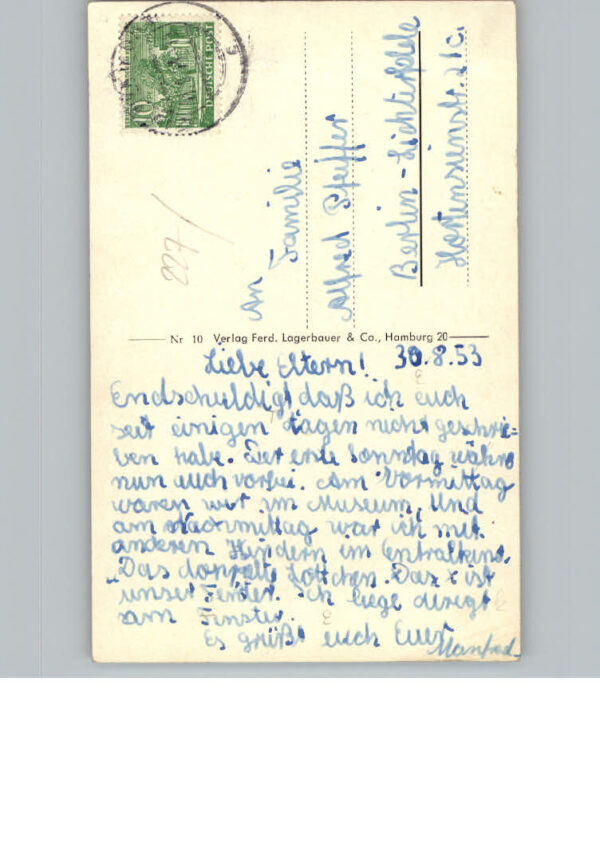 10
DEUTSCHE POST
An
Familie
Alfred Pfeiffer
Berlin-Lichterfelde
Hortensienstr. 21c.
Nr 10 Verlag Ferd. Lagerbauer & Co., Hamburg 20
Liebe Eltern! 30.8.53
Endschuldigt daß ich euch
seit einigen Tagen nicht geschrie=
ben habe. Der erste Sonntag währe
nun auch vorbei. Am Vormittag
waren wir im Museum, Und
am Nachmittag war ich mit
anderen Kindern im Centralkino.
„Das doppelte Lottchen. Das x ist
unser Fenster. Ich liege diregt
am Fenster.
Es grüßt euch Euer
Manfred